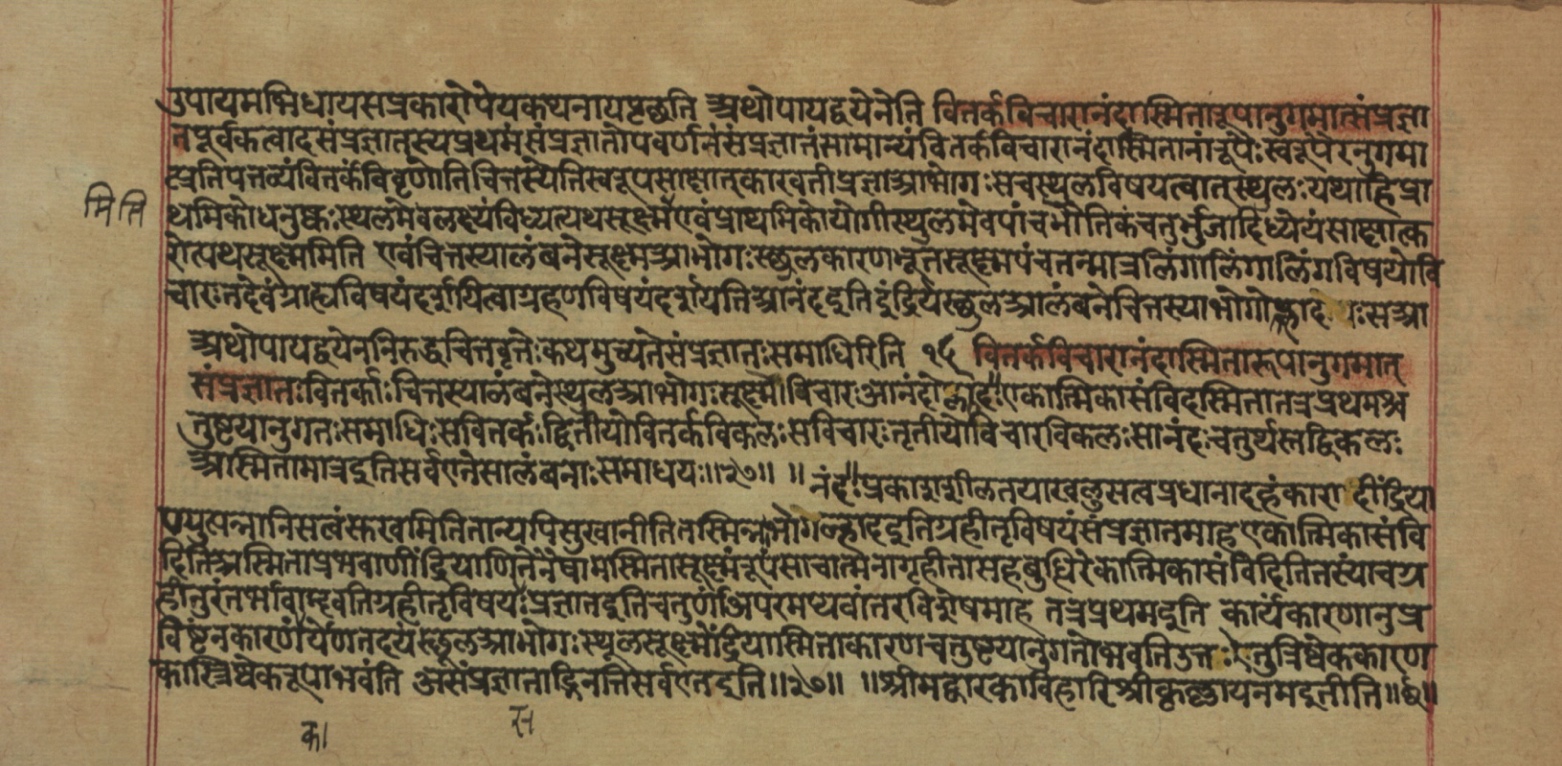 उपायमभिधायसप्रकारोपेयकथनायपृछति अथोपायद्वयेनेति वितर्कविचारानंदास्मितारूपानुगमात्संप्रज्ञा
तपूर्वकत्वादसंप्रज्ञातस्यप्रथमंसंप्रज्ञातोपवर्णनंसंप्रज्ञातंसामान्यंवितर्कविचारानंदास्मितानांरूपैःस्वरूपैरनुगमा
त्प्रतिपत्तव्यंवितर्कंविवृणोतिचित्तस्येतिस्वरूपसाक्षात्कारवतीप्रज्ञाआभोगःसचस्थूलविषयत्वात्स्थूलःयथाहिप्रा
मिति
थमिकोधनुष्कःस्थूलमेवलक्ष्यंविध्यत्यथसूक्ष्मंएवंप्राथमिकोयोगीस्थूलमेवपांचभौतिकंचतुर्भुजादिध्येयंसाक्षात्क
रोत्यथसूक्ष्ममिति एवंचित्तस्यालंबनेसूक्ष्मआभोगःस्थूलकारणभूतसूक्ष्मपंचतन्मात्रलिंगालिंगालिंगविषयोवि
चारःतदेवंग्राह्यविषयंदर्शयित्वाग्रहणविषयंदर्शयतिआनंदइतिइंद्रियेस्थूलआलंबनेचित्तस्याभोगोल्हादः सआ
अथोपायद्वयेननिरुद्धचित्तवृत्तेःकथमुच्यतेसंप्रज्ञातःसमाधिरिति १६ वितर्कविचारानंदास्मितारूपानुगमात्
संप्रज्ञातःवितर्काःचित्तस्यालंबनेस्थूलआभोगःसूक्ष्मोविचारःआनंदोल्हादःएकात्मिकासंविदस्मितातत्रप्रथमश्च
तुष्टयानुगतःसमाधिःसवितर्कःद्वितीयोवितर्कविकलःसविचारःतृतीयोविचारविकलःसानंदःचतुर्थस्तद्विकलः
अस्मितामात्रइतिसर्वएतेसालंबनाःसमाधयः॥१७॥ ॥
नंदःप्रकाशशीलतयाखलुसत्वप्रधानादहंकारादींद्रिया
ण्युत्पन्नानिसत्वंसुखमितितान्यपिसुखानीतितस्मिन्नाभोगल्हादइतिग्रहीतृविषयंसंप्रज्ञातमाहएकात्मिकासंवि
दितिअस्मिताप्रभवाणींद्रियाणितेनैषामस्मितासूक्ष्मंरूपंसाचात्मनागृहीतासहबुद्धिरेकात्मिकासंविदितितस्यांचग्र
हीतुरंतर्भावाद्भवतिग्रहीतृविषयःप्रज्ञातइतिचतुर्णांअपरमप्यवांतरविशेषमाह तत्रप्रथमइति कार्यंकारणानुप्र
विष्टंनकारणंर्येणतदयंस्थूलआभोगःस्थूलसूक्ष्मेंद्रियास्मिताकारणचतुष्टयानुगतोभवतिउत्तरेतुत्रिद्व्येककारण
कास्त्रिद्व्येकरूपाभवंति असंप्रज्ञाताद्भिनत्तिसर्वएतइति॥१७॥ ॥श्रीमद्वारकाविहारिश्रीकृष्णायनमइतीति॥६॥
का
स